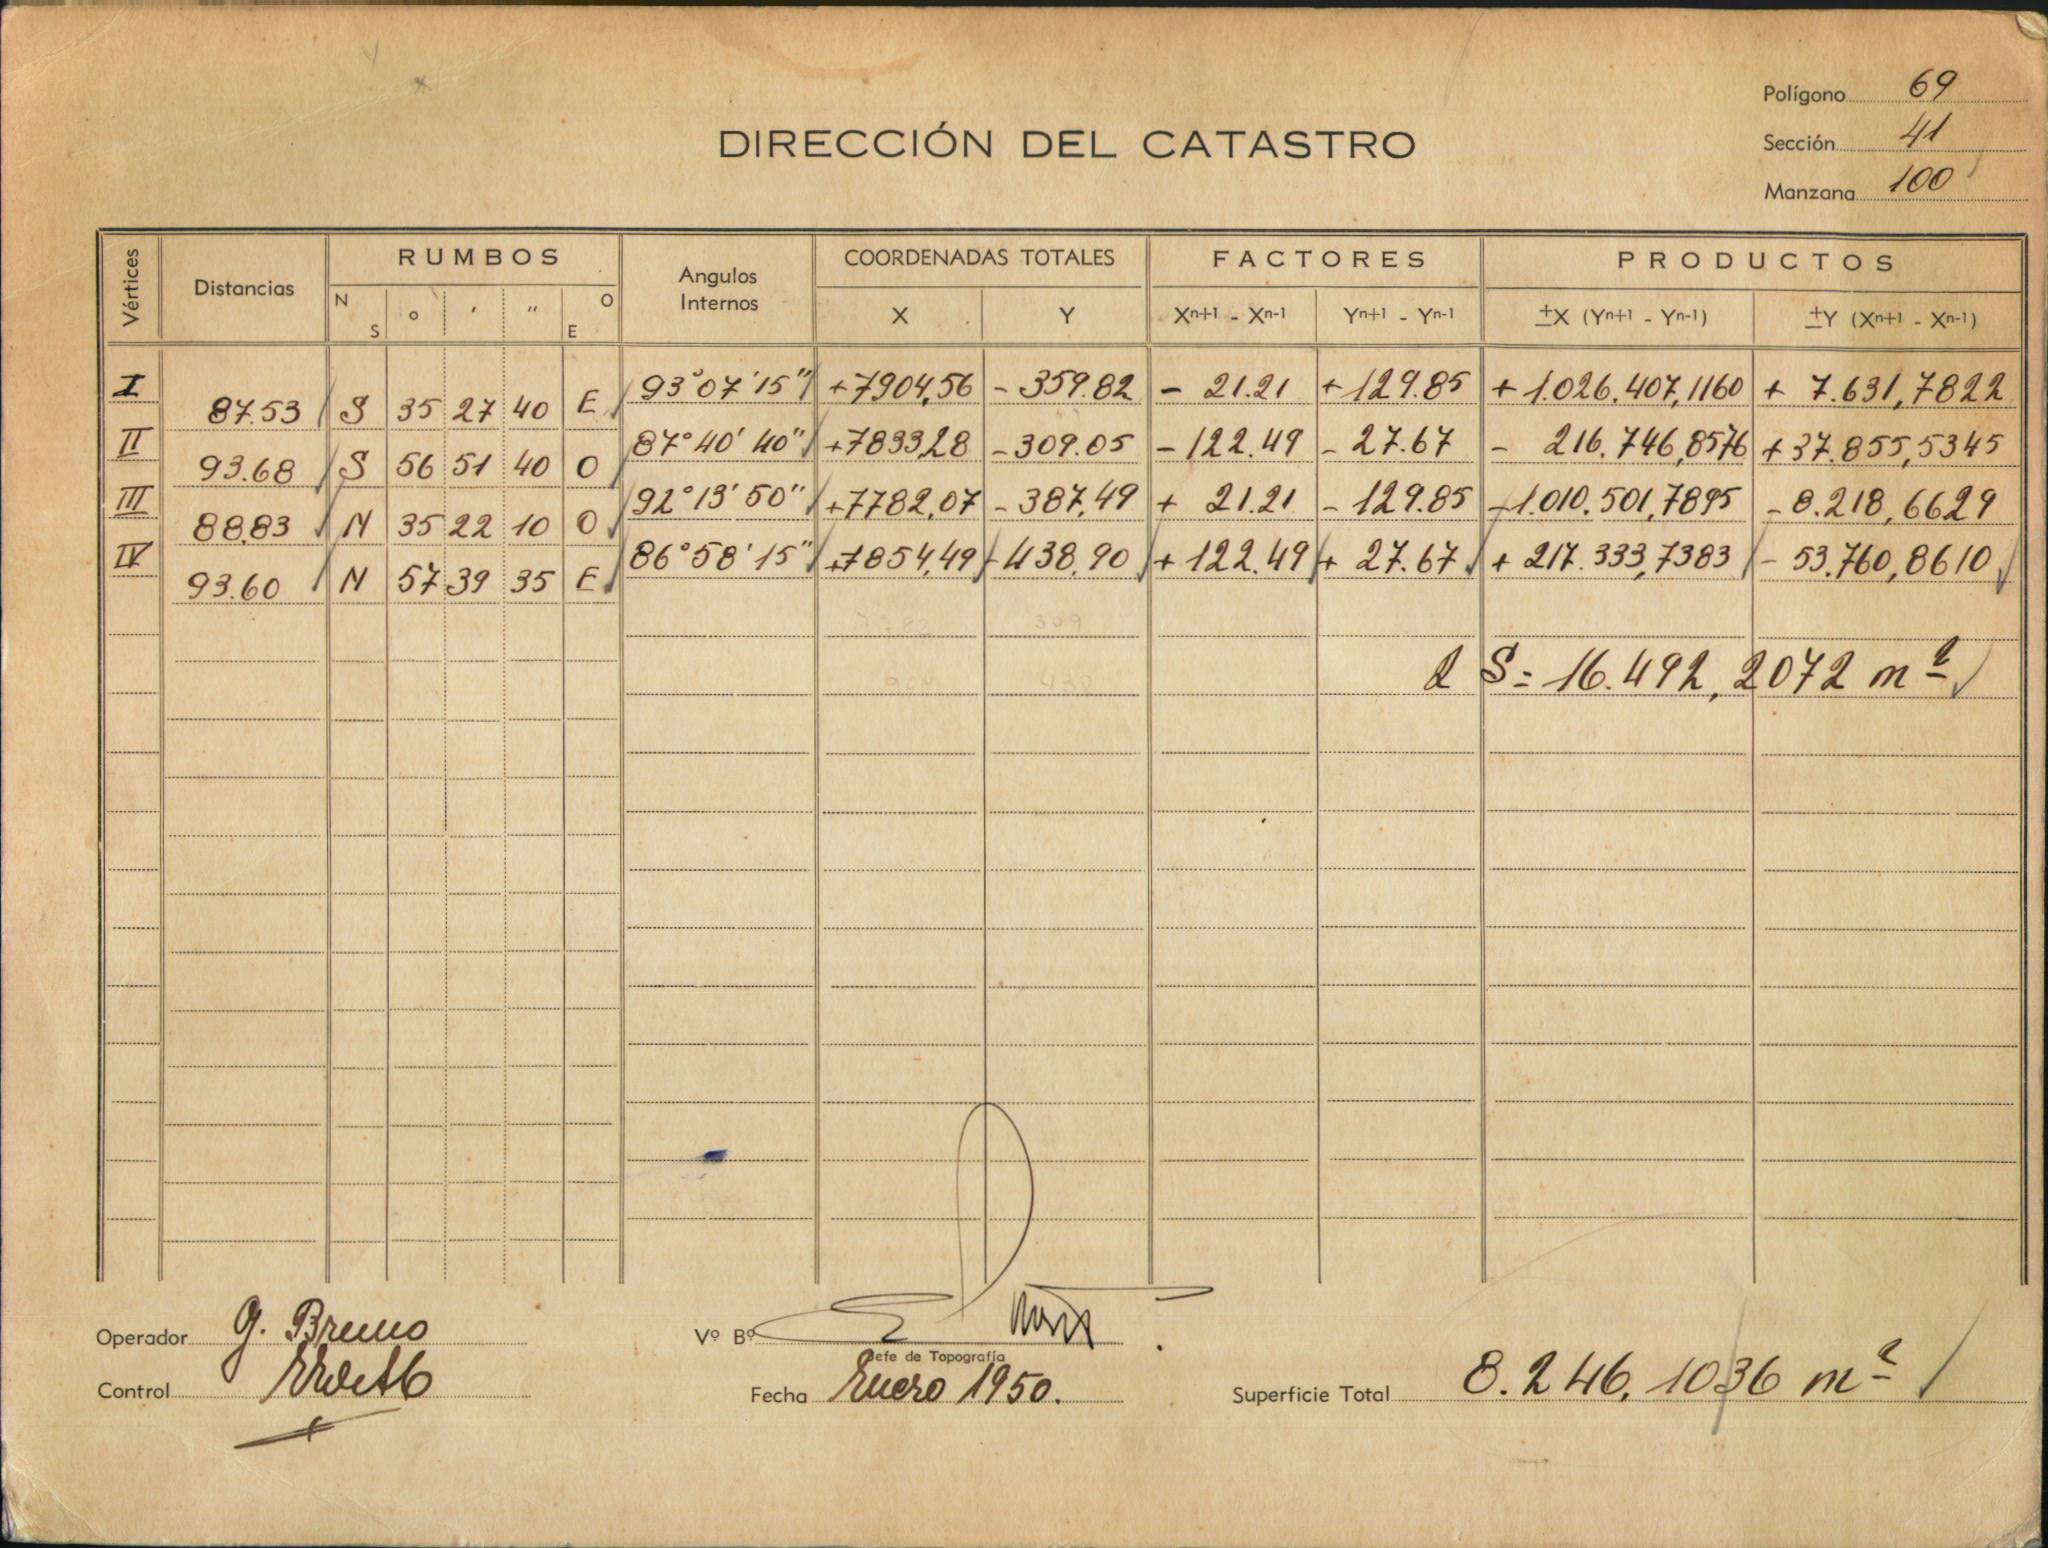 Polígono 69
DIRECCIÓN DEL CATASTRO
Sección 41
Manzana 100
Vértices Distancias RUMBOS Angulos Internos COORDENADAS TOTALES FACTORES PRODUCTOS
N S ° ' " O E X Y Xn+1 - Xn-1 Yn+1 - Yn-1 ±X (Yn+1 - Yn-1) ±Y (Xn+1 - Xn-1)
I 93°07'15" +7904,56 - 359.82 - 21.21 + 129.85 + 1.026.407,1160 + 7.631,7822
87.53 S 35 27 40 E
II 87°40'40" +7833,28 - 309.05 - 122.49 - 27.67 - 216.746,8576 + 37.855,5345
93.68 S 56 51 40 O
III 92°13'50" +7782,07 - 387,49 + 21.21 - 129.85 - 1.010.501,7895 - 8.218,6629
88,83 N 35 22 10 O
IV 86°58'15" +7854,49 - 438,90 + 122.49 + 27.67 + 217.333,7383 - 53.760,8610
93.60 N 57 39 35 E
2 S = 16.492,2072 m²
Operador G. Bruno
Vº Bº
Jefe de Topografía
Control
Fecha Enero 1950.
Superficie Total 8.246,1036 m²